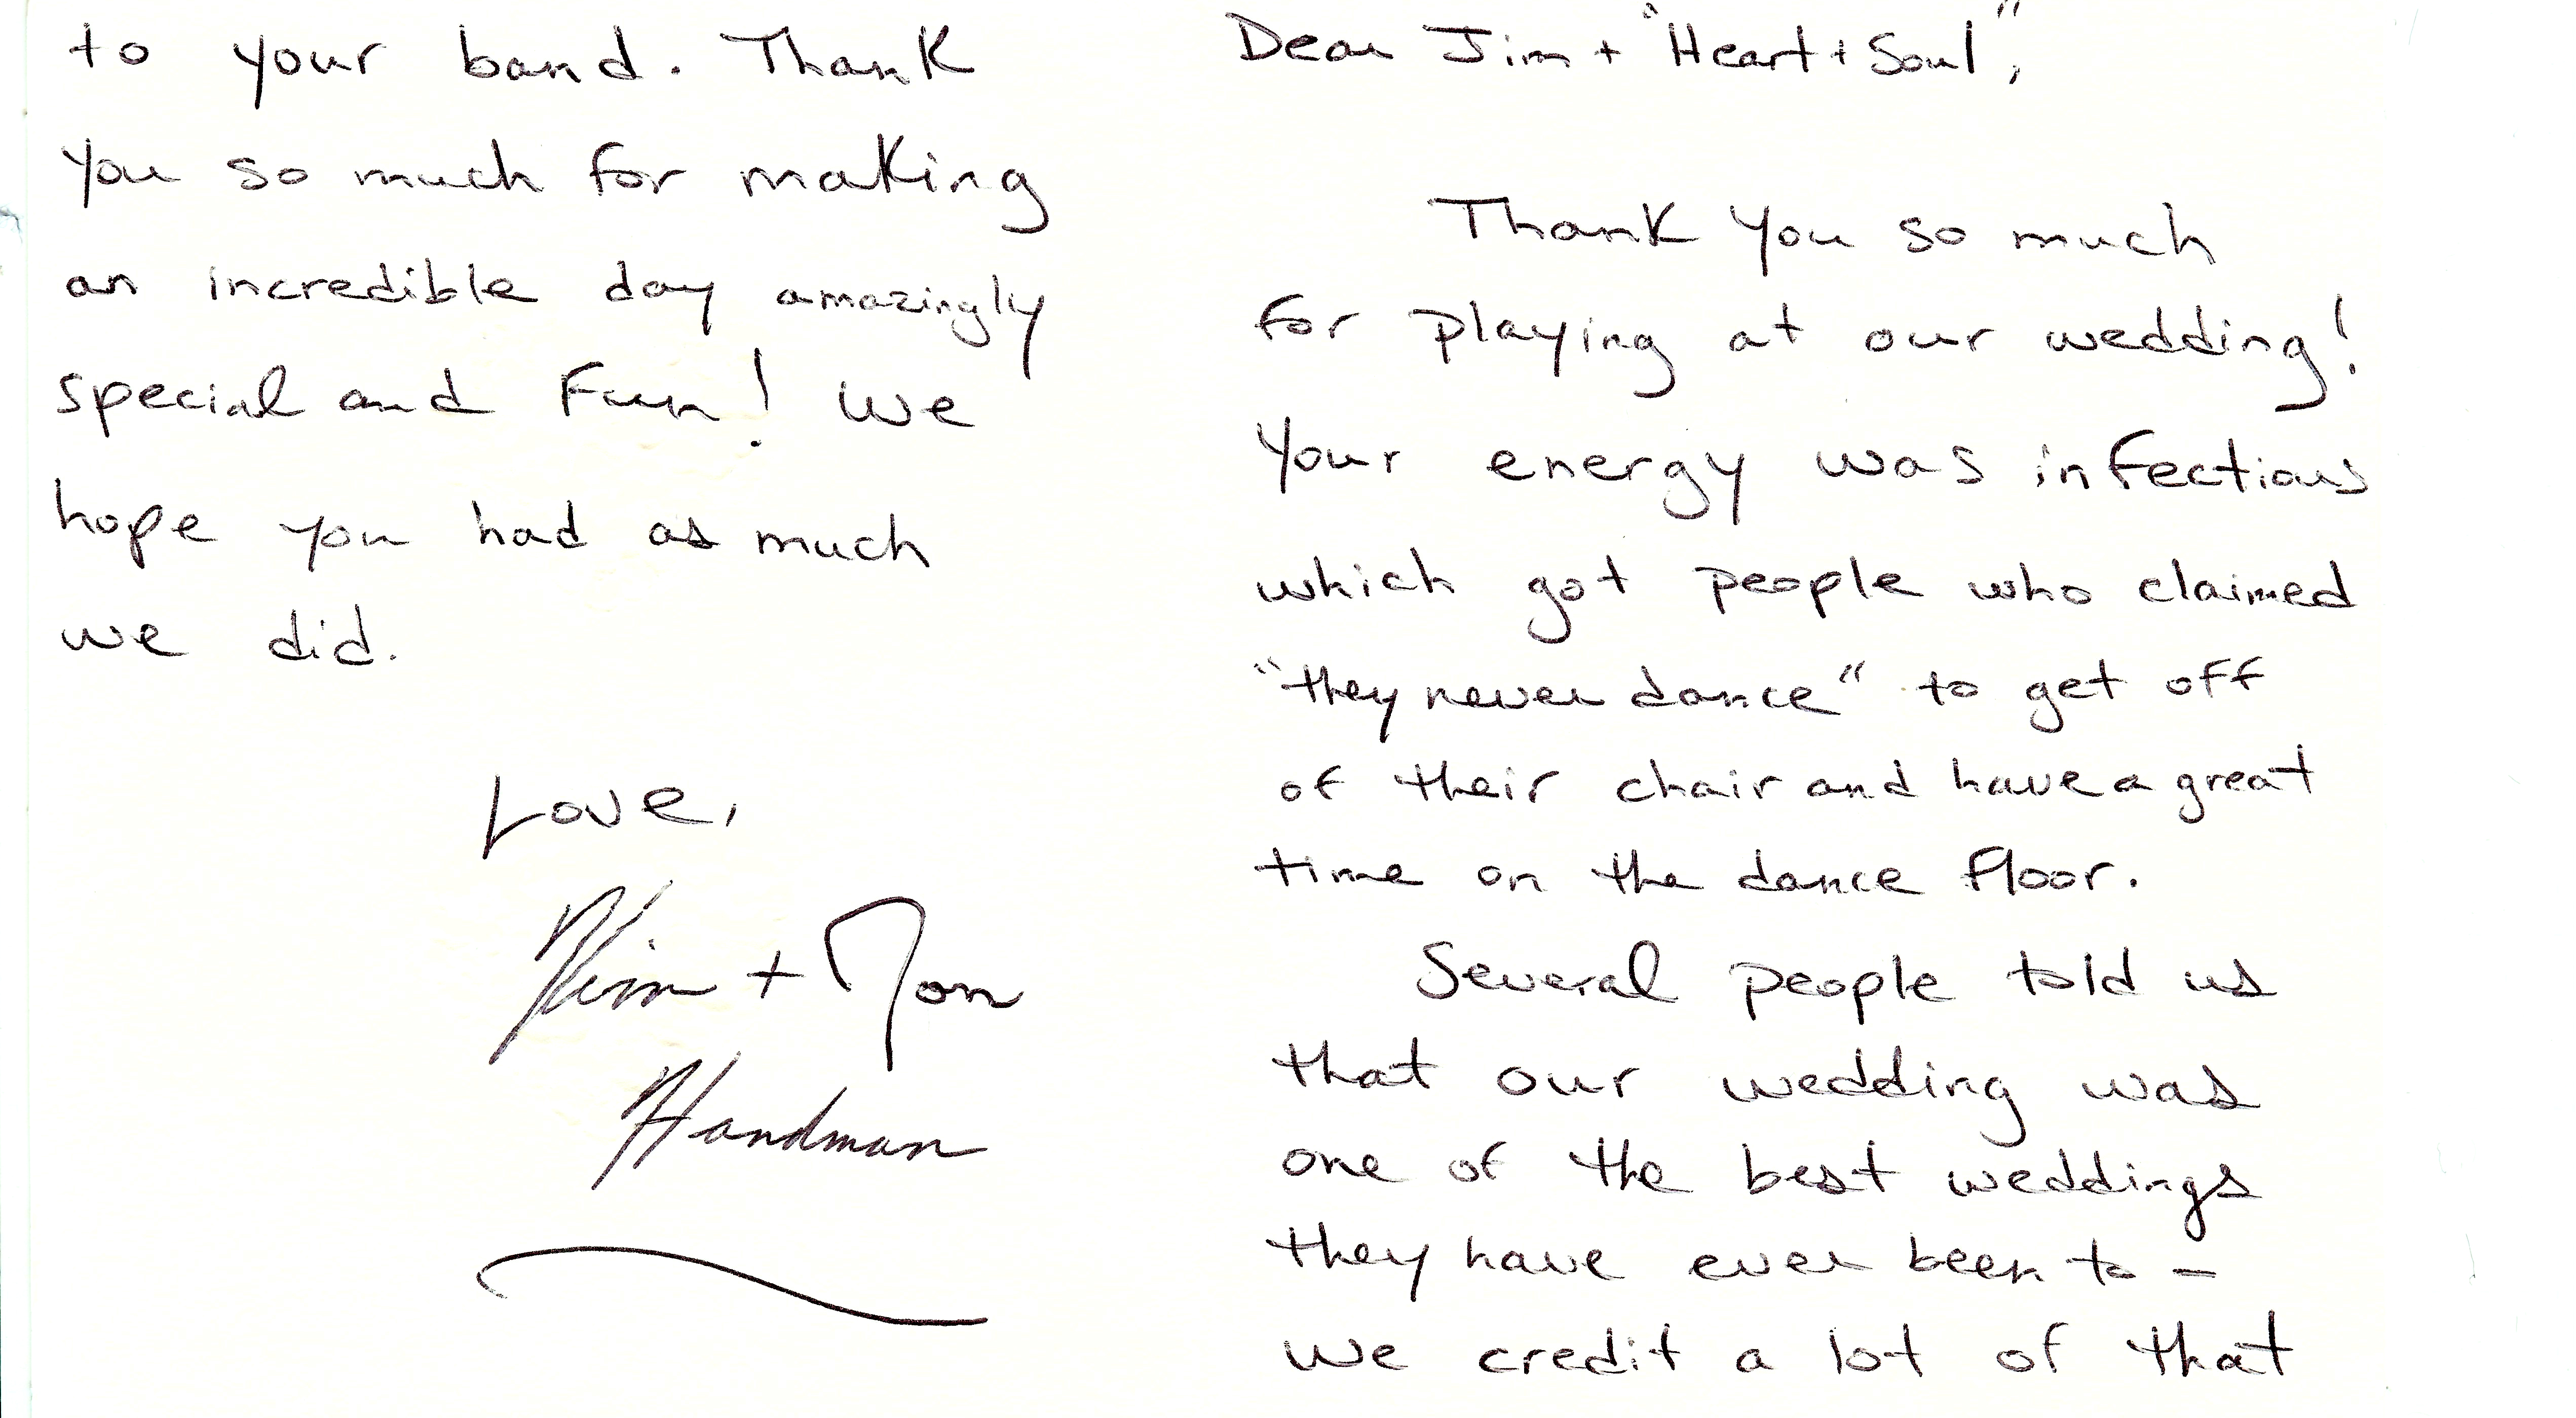 Dear Jim + "Heart + Soul",
Thank you so much
for playing at our wedding!
Your energy was infectious
which got people who claimed
"they never dance" to get off
of their chair and have a great
time on the dance floor.
Several people told us
that our wedding was
one of the best weddings
they have ever been to –
we credit a lot of that
to your band. Thank
you so much for making
an incredible day amazingly
special and fun! We
hope you had as much
we did.
Love,
Kim + Jon
Handman